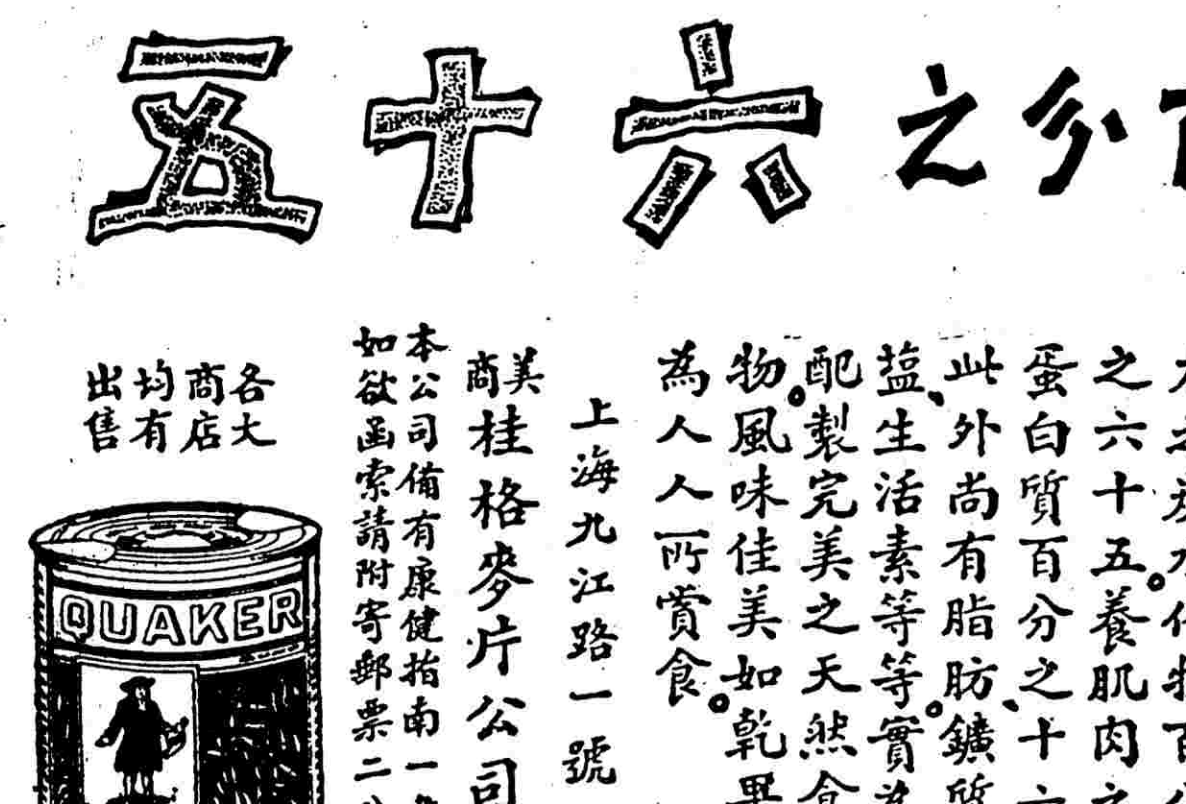 分之六十五
之六十五。養肌肉之
蛋白質百分之十六
此外尚有脂肪、鑛質
塩、生活素等等。實為
配製完美之天然食
物。風味佳美如乾果
為人人所賞食。
上海九江路一號
美商桂格麥片公司
本公司備有康健指南一
如欲函索請附寄郵票二
各大
商店
均有
出售
QUAKER